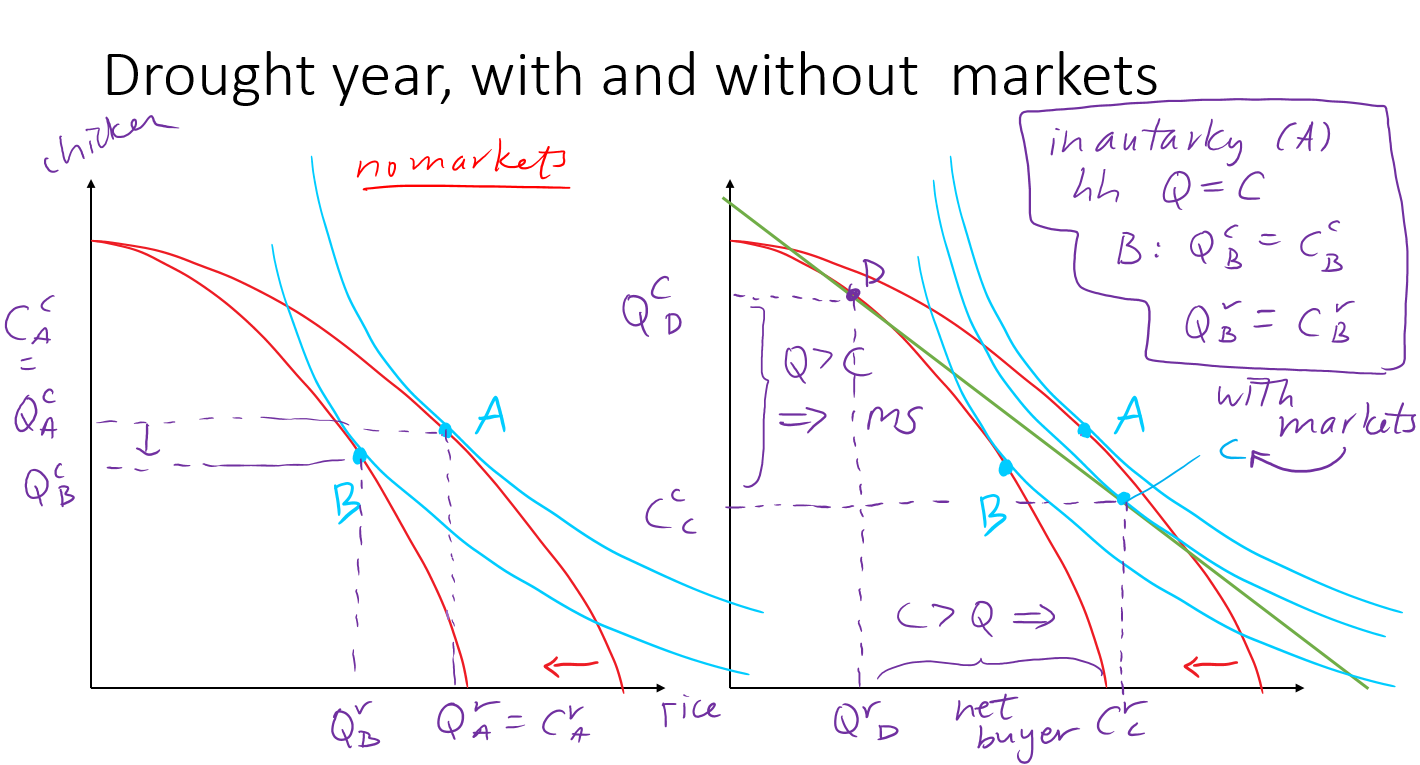 Drought year, with and without markets
chicken
no markets
C_A^c
=
Q_A^c
Q_B^c
A
B
Q_B^r
Q_A^r = C_A^r
rice
in autarky (A)
hh Q = C
B: Q_B^c = C_B^c
Q_B^r = C_B^r
with
markets
D
Q_D^c
Q > C
⇒ ms
A
C
C_C^c
B
C > Q ⇒
Q_D^r
net
buyer
C_C^r